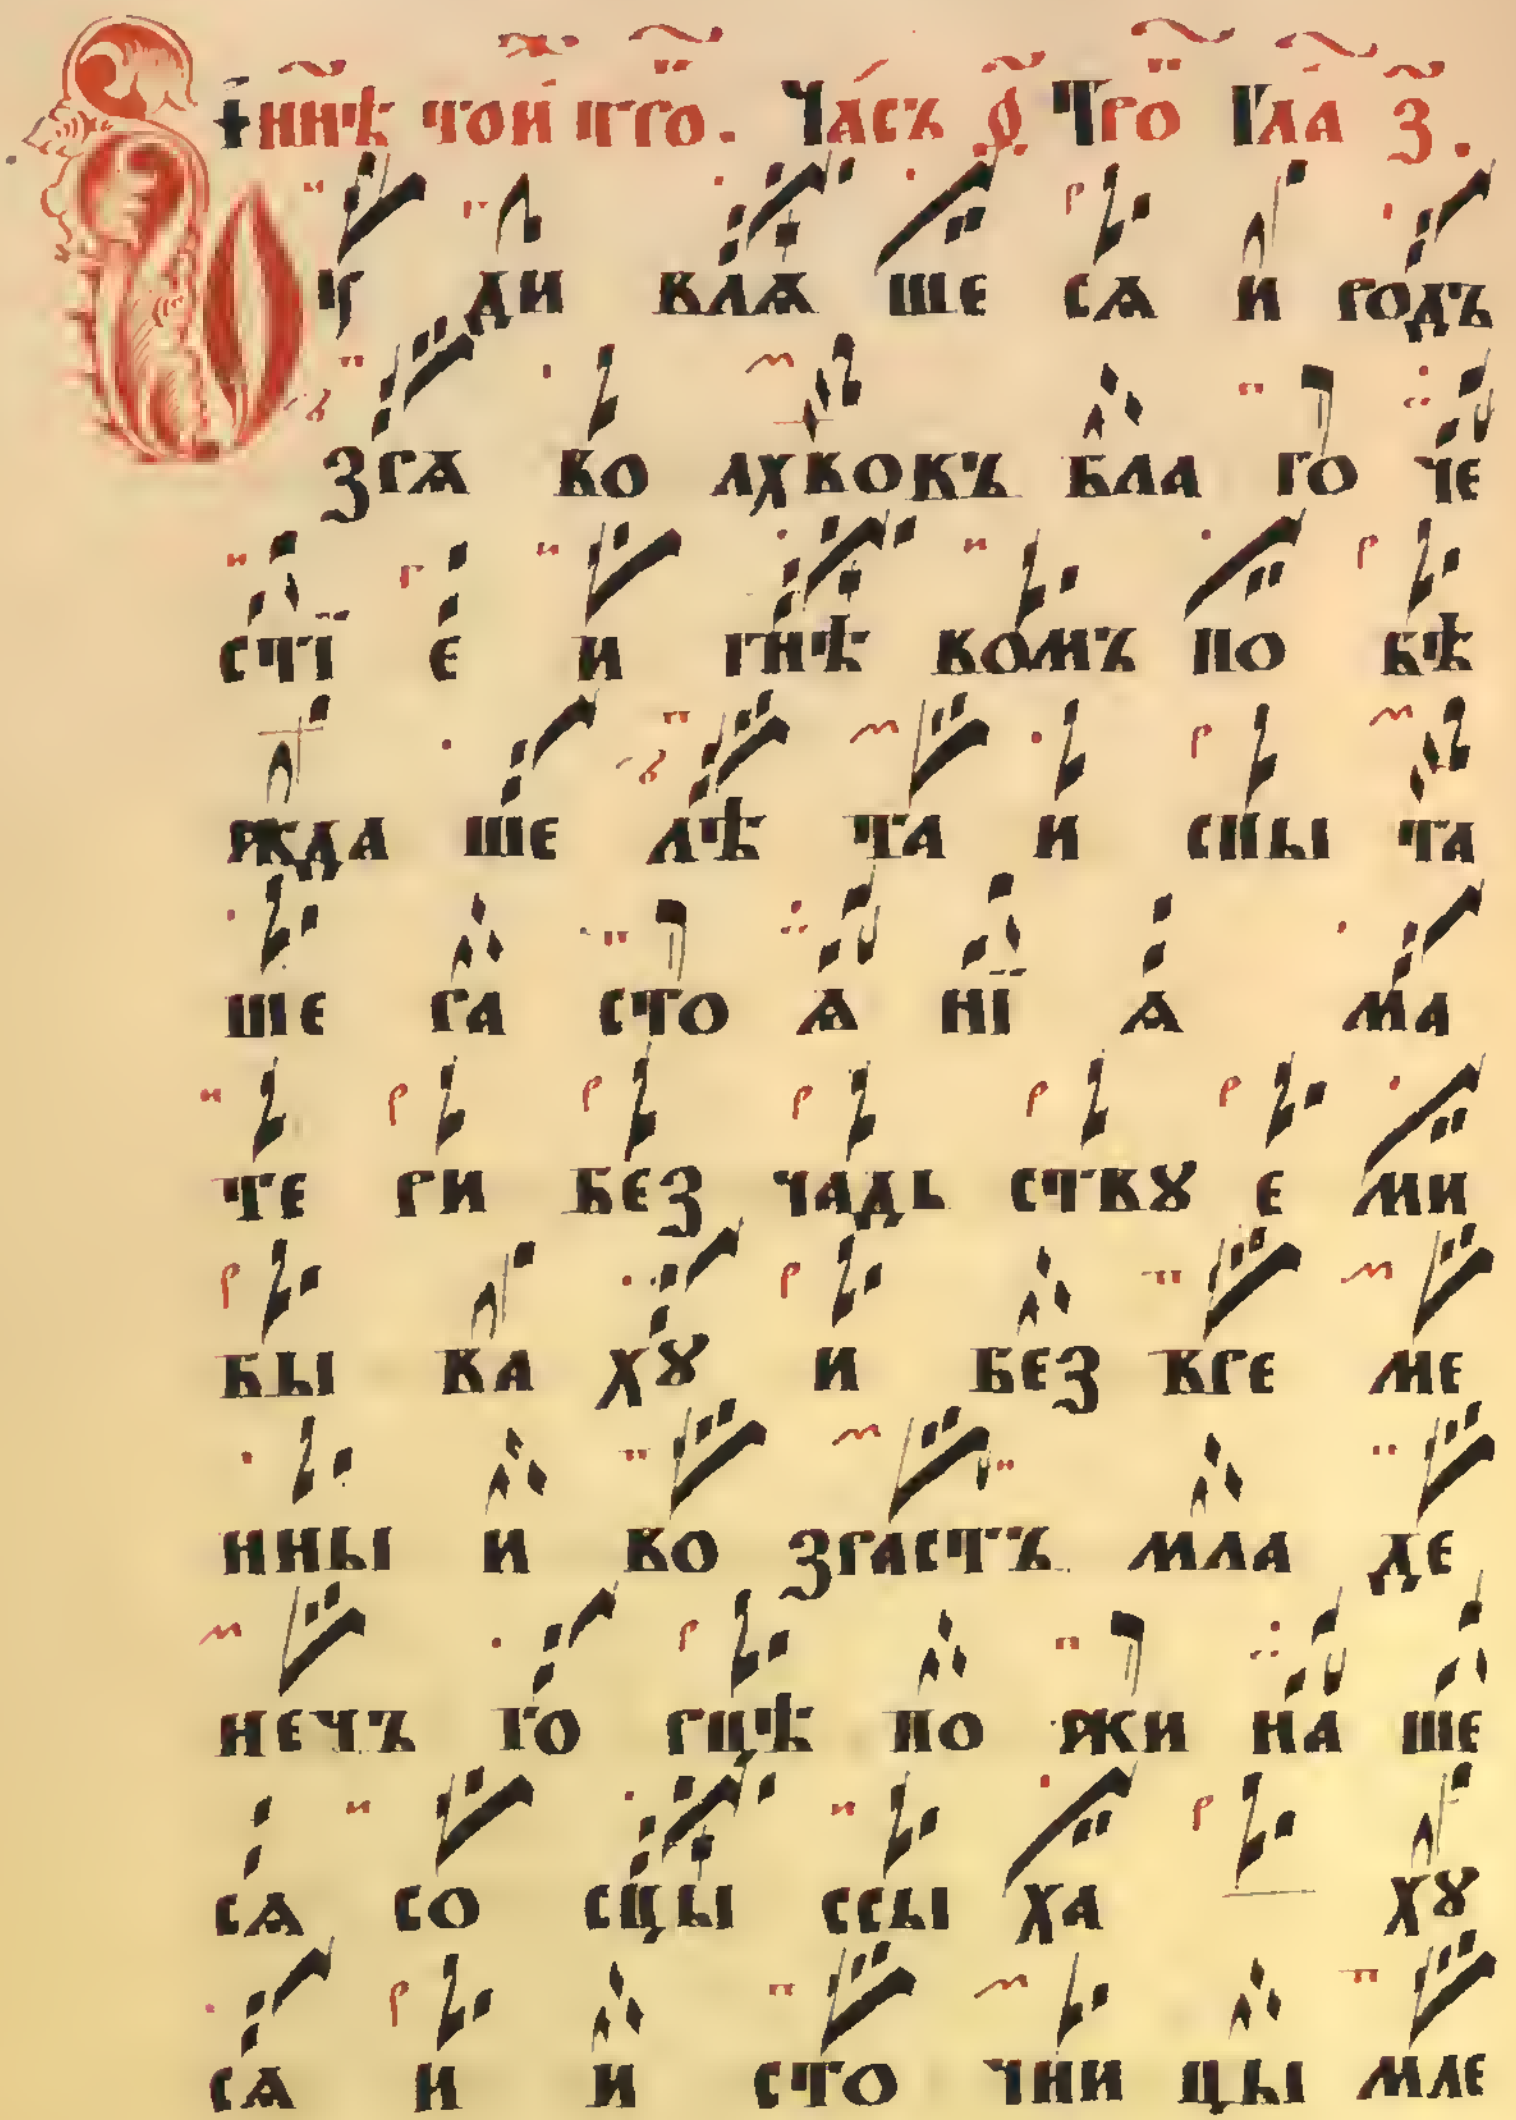 И ннѣ той тро. Часъ ѳ҃ Тро Гла з҃.
Чꙋ ди влѧ ше сѧ и родъ
зрѧ во лхвовъ бла го че
стї е и гнѣ вомъ по бѣ
жда ше лѣ та и спы та
ше ра сто ѧ нї ѧ ма
те ри без чадь ствꙋ е ми
бы ва хꙋ и без вре ме
нны и во зрастъ мла де
нечъ го рцѣ по жи на ше
сѧ со сцы ссы ха хꙋ
сѧ и и сто чни цы мле